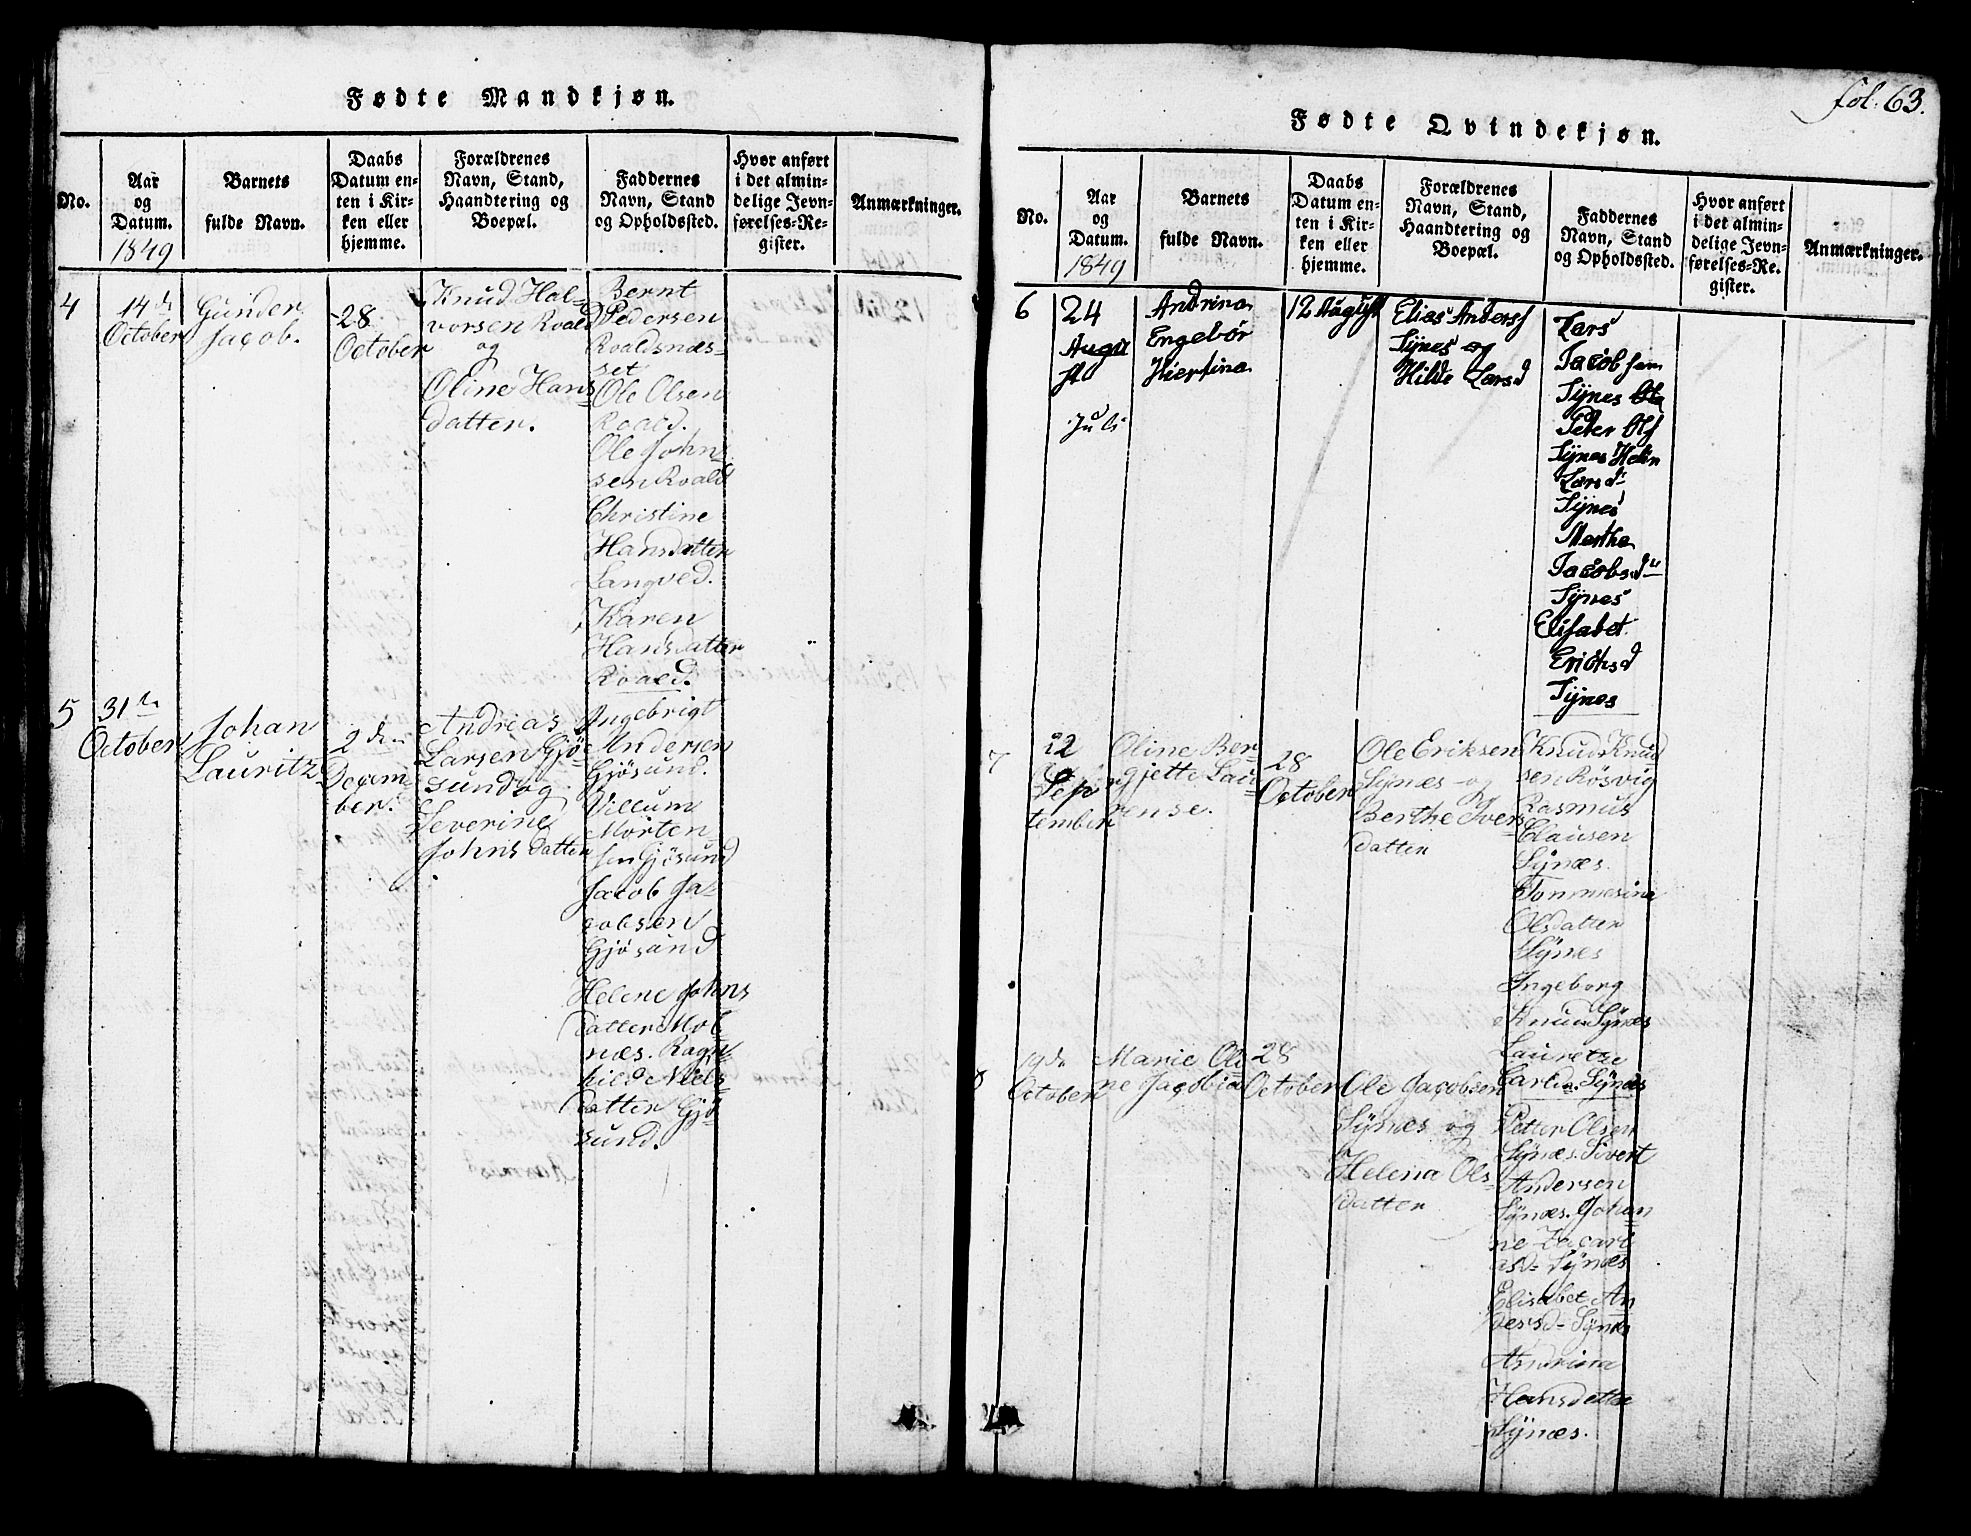 Fødte Mandkjøn.
No.
Aar
og
Datum.
1849
Barnets
fulde Navn.
Daabs
Datum en-
ten i Kir-
ken eller
hjemme.
Forældrenes
Navn, Stand,
Haandtering og
Boepæl.
Faddernes
Navn, Stand
og Opholdssted.
Hvor anført
i det almin-
delige Jevn-
førelses-Re-
gister.
Anmærkninger.
4
14de
October
Gunder
Jacob.
28
October
Knud Hal-
vorsen Roald
og
Oline Hans
datter.
Bernt
Pedersen
Roaldsnæs-
set
Ole Olsen
Roald.
Ole John
sen Roald
Christine
Hansdatter
Langved.
Karen
Hansdatter
Roald.
5
31te
October
Johan
Lauritz
2de
Decem-
ber.
Andreas
Larsen Gjö-
sund og
Severine
Johns datter
Ingebrigt
Andersen
Gjösund.
Villum
Morten-
sen Gjösund
Jacob Ja-
cobsen
Gjösund
Helene Johns
datter Mol-
næs. Ragn-
hild Niels-
datter Gjö-
sund.
fol. 63.
Fødte Qvindekjøn.
No.
Aar
og
Datum.
1849
Barnets
fulde Navn.
Daabs
Datum en-
ten i Kir-
ken eller
hjemme.
Forældrenes
Navn, Stand,
Haandtering og
Boepæl.
Faddernes
Navn, Stand
og Opholdssted.
Hvor anført
i det almin-
delige Jevn-
førelses-Re-
gister.
Anmærkninger.
6
24
Augu
st
Juli
Andrina
Engebör
12 August
Elias Anders
Synes og
Hilde Larsd
Lars
Jacobsen
Synes
Peter Ols
Synes
Larsd
Synes
Marthe
Jacobsd
Synes
Elisabet
Ericksd
Synes
7
22
Sep
tember
Oline Ber
gjette Lau
rense.
28
October
Ole Eriksen
Synes og
Berthe Ivers
datter
Knud Knud
sen Rösvig
Rasmus
Clausen
Synæs.
Tommesine
Olsdatter
Synes
Ingeborg
Knuds Synes
Lauretze
Carlda. Synæs
8
19de
October
Marie Oli
ne Jacobia
28
October
Ole Jacobsen
Synæs og
Helena Ols
datter
Petter Olsen
Synæs. Sivert
Andersen
Synæs. Johan
ne Zacari
asd- Synæs
Elisabet An
dersd- Synæs
Andrina
Hansdatter
Synæs.